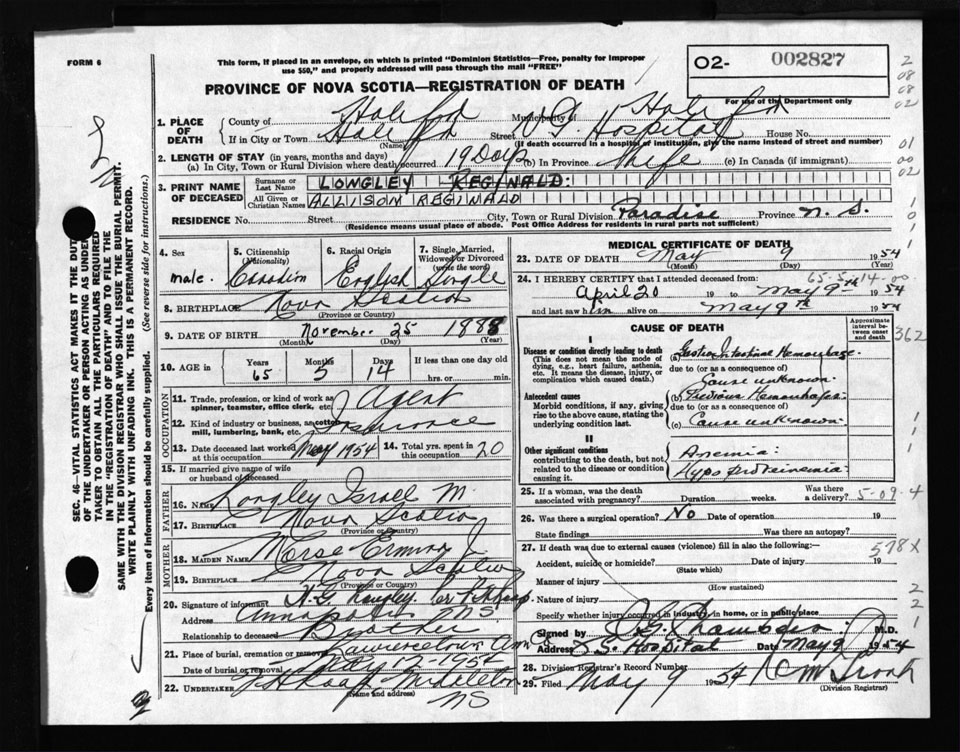 FORM 6
This form, if placed in an envelope, on which is printed "Dominion Statistics—Free, penalty for improper
use $50," and properly addressed will pass through the mail "FREE"
O2- 002827
PROVINCE OF NOVA SCOTIA—REGISTRATION OF DEATH
For use of the Department only
1. PLACE OF DEATH
County of Halifax Municipality of Halifax
If in City or Town Halifax Street V G. Hospital House No.
(Name) (If death occurred in a hospital or institution, give the name instead of street and number)
2. LENGTH OF STAY (in years, months and days)
(a) In City, Town or Rural Division where death occurred 19 Days (b) In Province life (c) In Canada (if immigrant)
3. PRINT NAME OF DECEASED
Surname or Last Name LONGLEY REGINALD:
All Given or Christian Names ALLISON REGINALD
RESIDENCE No. Street City, Town or Rural Division Paradise Province N. S.
(Residence means usual place of abode. Post Office Address for residents in rural parts not sufficient)
4. Sex
male.
5. Citizenship
(Nationality)
Canadian
6. Racial Origin
English
7. Single, Married, Widowed or Divorced
(write the word)
Single
8. BIRTHPLACE Nova Scotia
(Province or Country)
9. DATE OF BIRTH November 25 1888
(Month) (Day) (Year)
10. AGE in
Years 65
Months 5
Days 14
If less than one day old
hrs. or min.
OCCUPATION
11. Trade, profession, or kind of work as spinner, teamster, office clerk, etc. Agent
12. Kind of industry or business, as cotton mill, lumbering, bank, etc. Insurance
13. Date deceased last worked at this occupation May 1954
14. Total yrs. spent in this occupation 20
15. If married give name of wife or husband of deceased
FATHER
16. Name Longley Israel M.
17. BIRTHPLACE Nova Scotia
(Province or Country)
MOTHER
18. MAIDEN NAME Morse
19. BIRTHPLACE Nova Scotia
(Province or Country)
20. Signature of informant Longley per
Address NS
Relationship to deceased Brother
21. Place of burial, cremation or removal Lawrencetown Ann
Date of burial or removal May 12-1954
22. UNDERTAKER Middleton
(Name and address)
NS
MEDICAL CERTIFICATE OF DEATH
23. DATE OF DEATH May 9 1954
(Month) (Day) (Year)
24. I HEREBY CERTIFY that I attended deceased from:
April 20 19 to May 9th 1954
and last saw him alive on May 9th 1954
CAUSE OF DEATH
Approximate interval between onset and death
I
Disease or condition directly leading to death
(This does not mean the mode of dying, e.g., heart failure, asthenia, etc. It means the disease, injury, or complication which caused death.)
(a) Gastro Intestinal Hemorrhage
due to (or as a consequence of)
Cause unknown.
Antecedent causes
Morbid conditions, if any, giving rise to the above cause, stating the underlying condition last.
(b) Previous Hemorrhages
due to (or as a consequence of)
(c) Cause unknown.
II
Other significant conditions
contributing to the death, but not related to the disease or condition causing it.
Anemia:
Hypoproteinemia
25. If a woman, was the death associated with pregnancy? Duration weeks. Was there a delivery?
5-09 4
26. Was there a surgical operation? No Date of operation 19
State findings Was there an autopsy?
27. If death was due to external causes (violence) fill in also the following:—
578X
Accident, suicide or homicide? Date of injury 19
(State which)
Manner of injury
(How sustained)
Nature of injury
Specify whether injury occurred in industry, in home, or in public place
Signed by Chambers M.D.
Address Hospital Date May 9 1954
28. Division Registrar's Record Number
29. Filed May 9 1954
(Division Registrar)
SEC. 46—VITAL STATISTICS ACT MAKES IT THE DUTY
OF THE UNDERTAKER OR PERSON ACTING AS UNDER-
TAKER TO OBTAIN ALL THE PARTICULARS REQUIRED
IN THE "REGISTRATION OF DEATH" AND TO FILE THE
SAME WITH THE DIVISION REGISTRAR WHO SHALL ISSUE THE BURIAL PERMIT.
WRITE PLAINLY WITH UNFADING INK. THIS IS A PERMANENT RECORD.
Every item of information should be carefully supplied. (See reverse side for instructions.)
362